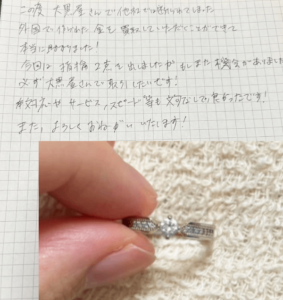 この度 大黒屋さんで他社では断られてしました
外国で作られた 金を 買取して いただくことができて
本当に助かりました!
今回は 指輪 2点を出しましたが もしまた機会がありましたら
必ず 大黒屋さんで取引したいです!
対応 サービス、スピード等も 文句なしで 良かったです!
また、よろしくおねがい いたします!